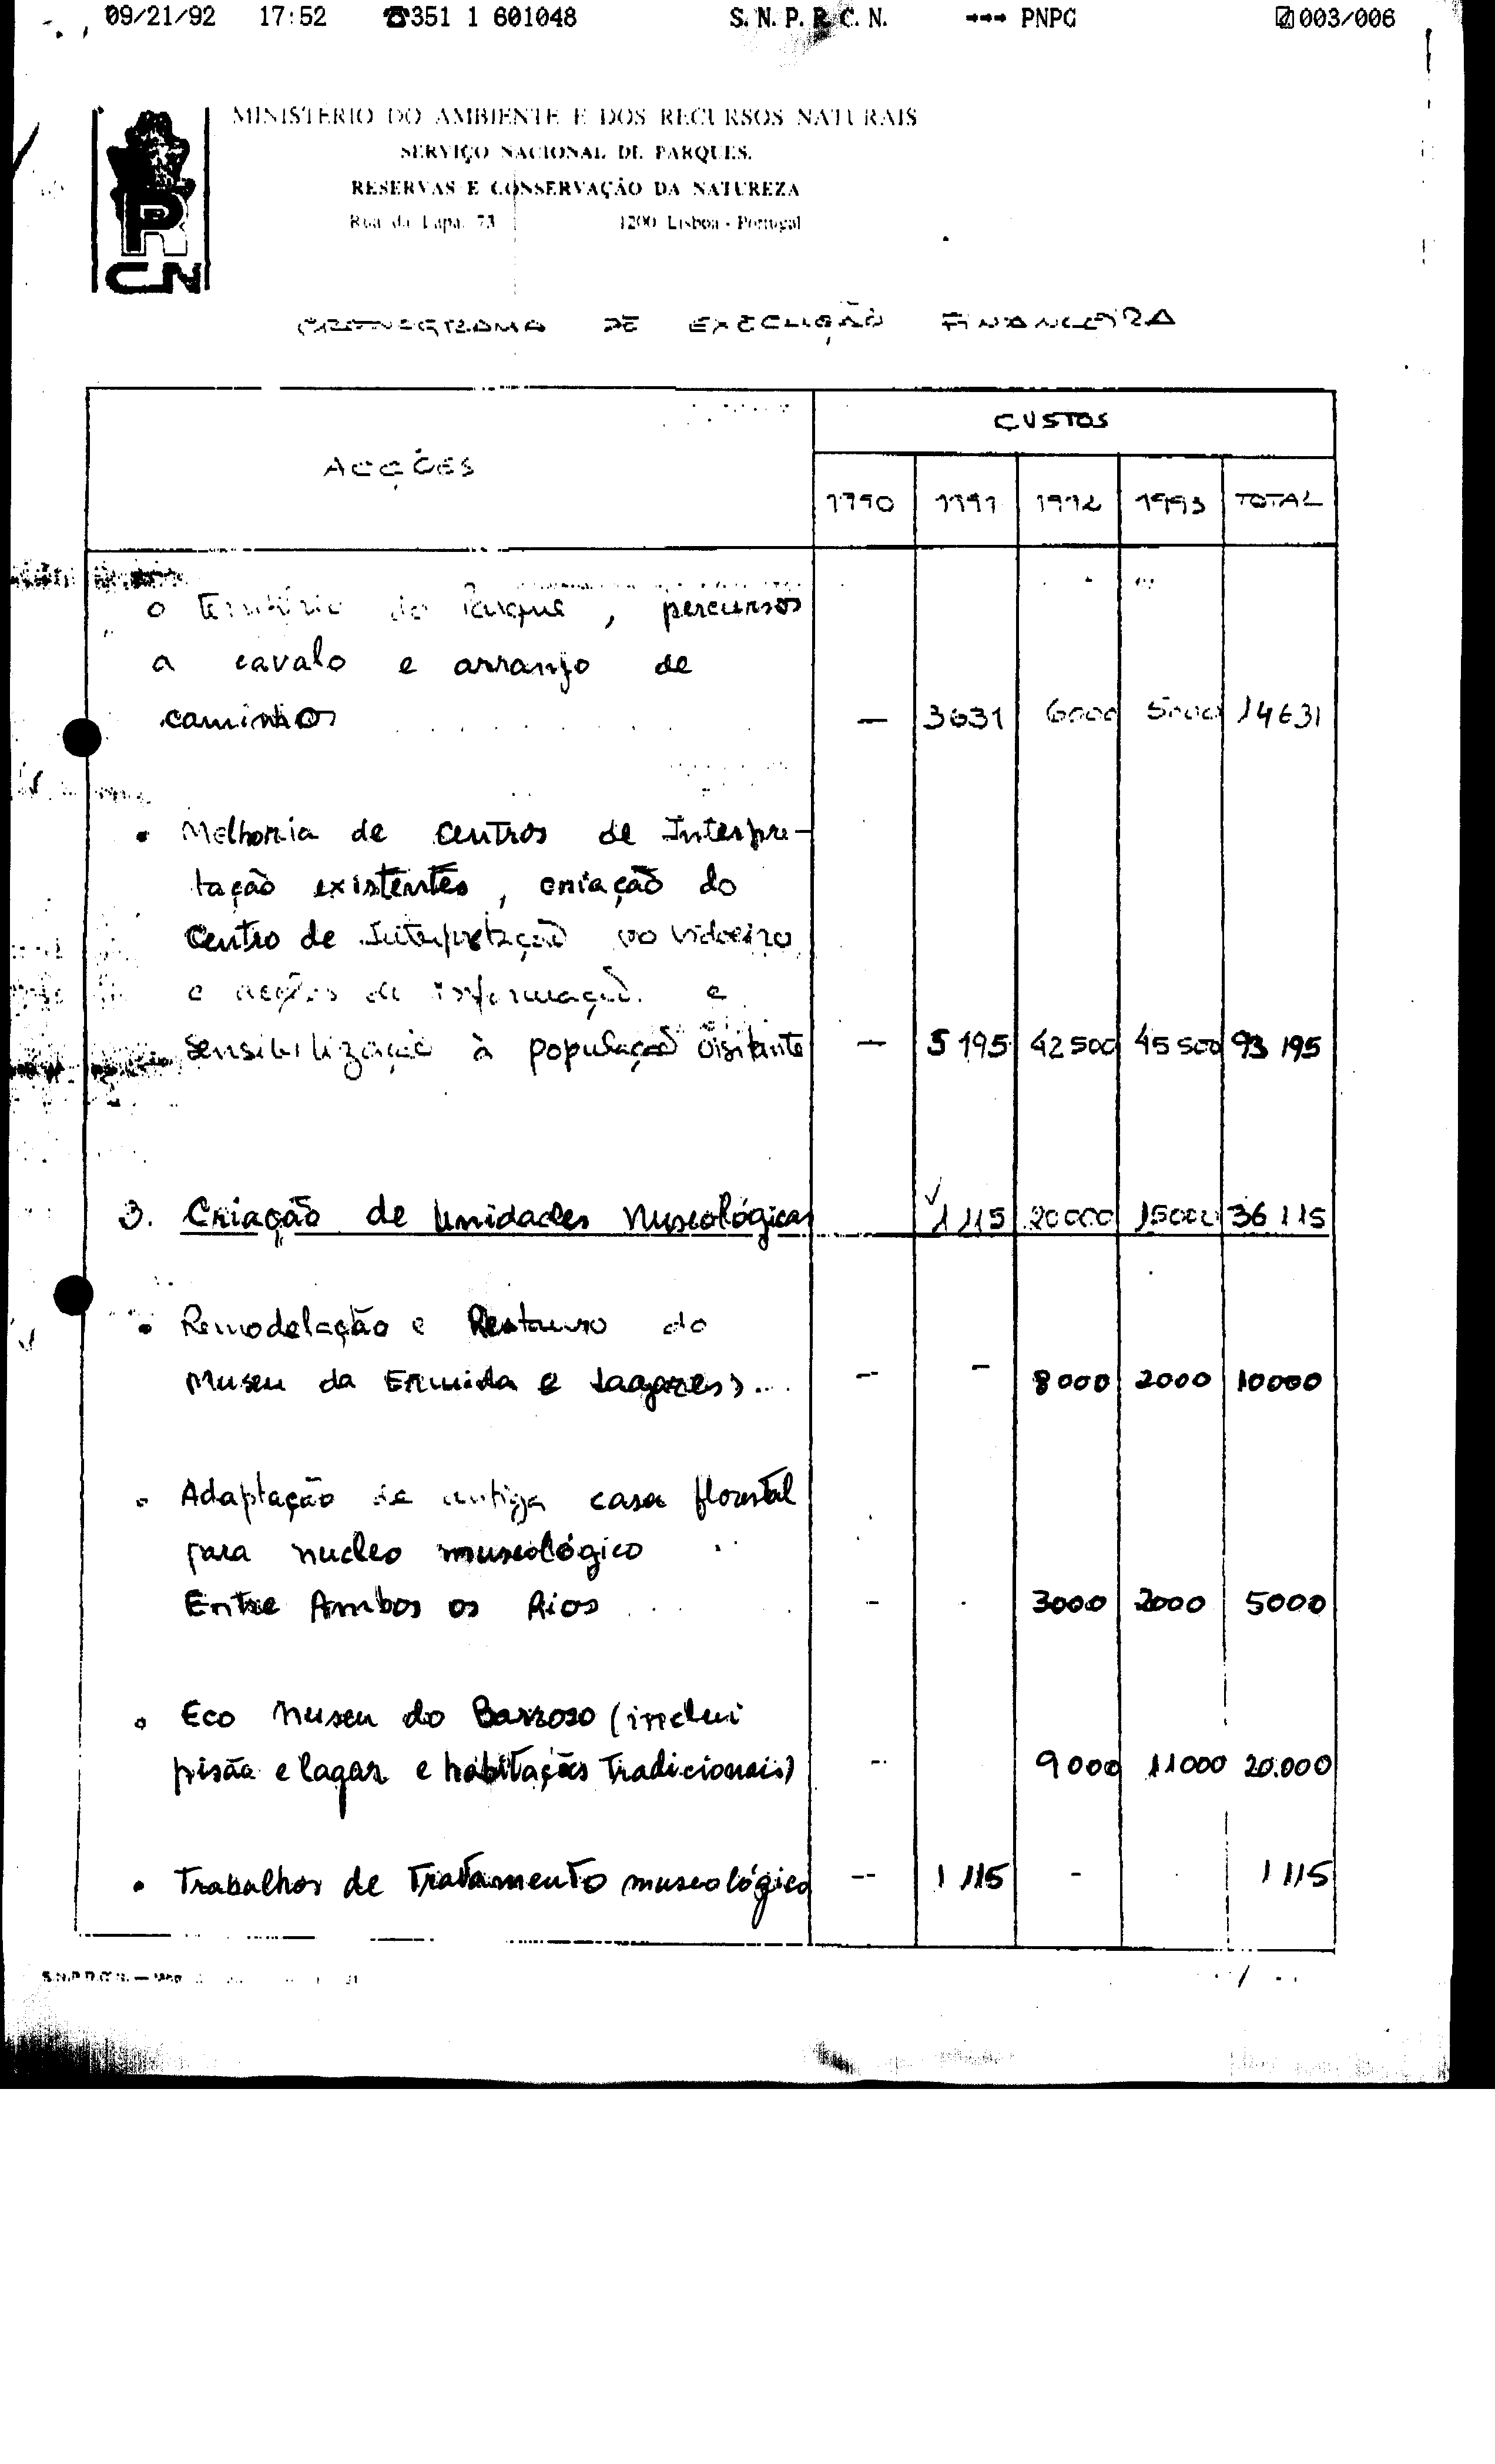 09/21/92 17:52 ☎351 1 601048 S. N. P. R. C. N. →→→ PNPG 003/006
MINISTÉRIO DO AMBIENTE E DOS RECURSOS NATURAIS
SERVIÇO NACIONAL DE PARQUES,
RESERVAS E CONSERVAÇÃO DA NATUREZA
Rua da Lapa, 73 1200 Lisboa - Portugal
PR
CN
CRONOGRAMA DE EXECUÇÃO FINANCEIRA
ACÇÕES
CUSTOS
1990 1991 1992 1993 TOTAL
o Território do Parque, percursos
a cavalo e arranjo de
caminhos — 3631 6000 5000 14631
• Melhoria de centros de Interpre-
tação existentes, criação do
Centro de Interpretação no Vidoeiro
e acções de informação e
sensibilização à população visitante — 5 195 42 500 45 500 93 195
3. Criação de Unidades Museológicas 1 115 20000 15000 36 115
• Remodelação e Restauro do
Museu da Ermida e - - 8000 2000 10000
• Adaptação de antiga casa florestal
para nucleo museológico
Entre Ambos os Rios - 3000 2000 5000
• Eco Museu do Barroso (inclui
pisão e lagar e habitações Tradicionais) - 9000 11000 20.000
• Trabalhos de Tratamento museológico -- 1 115 - 1 115